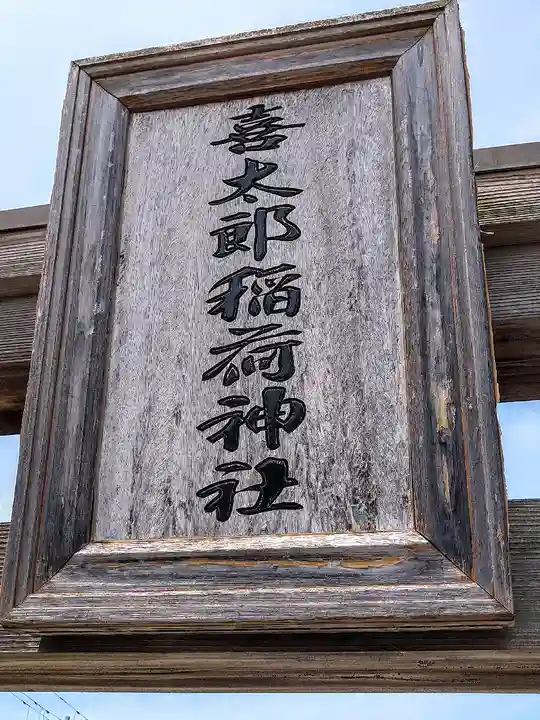 喜太郎稲荷神社